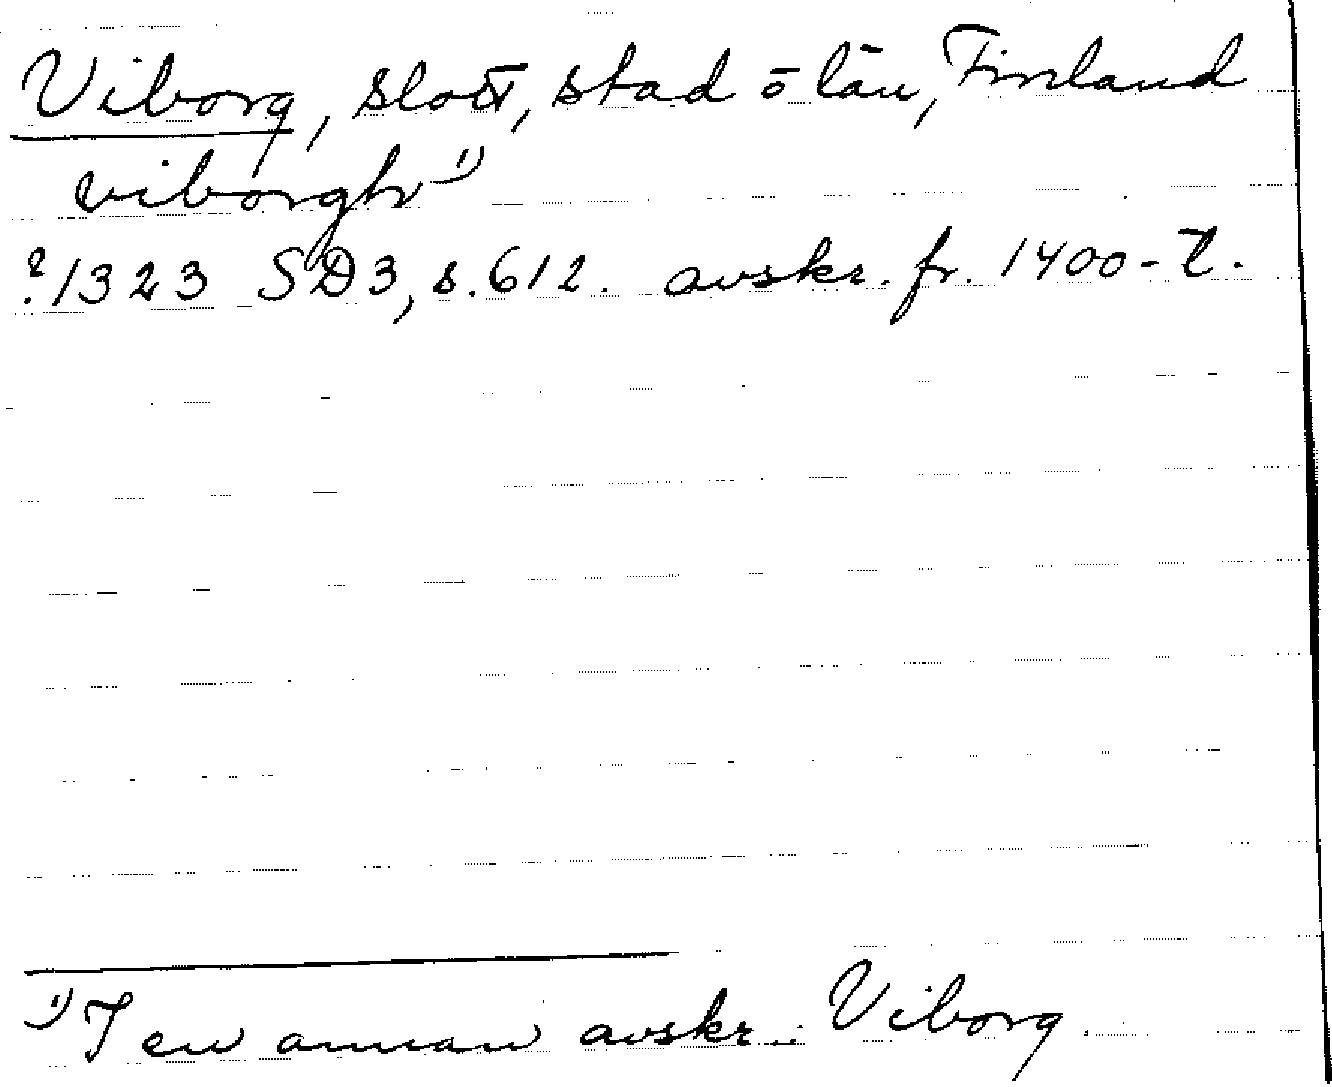 Viborg, slott, stad o län, Finland
viborgh 1)
? 1323 SD3, s. 612. avskr. fr. 1400-t.
1) I en annan avskr.: Viborg